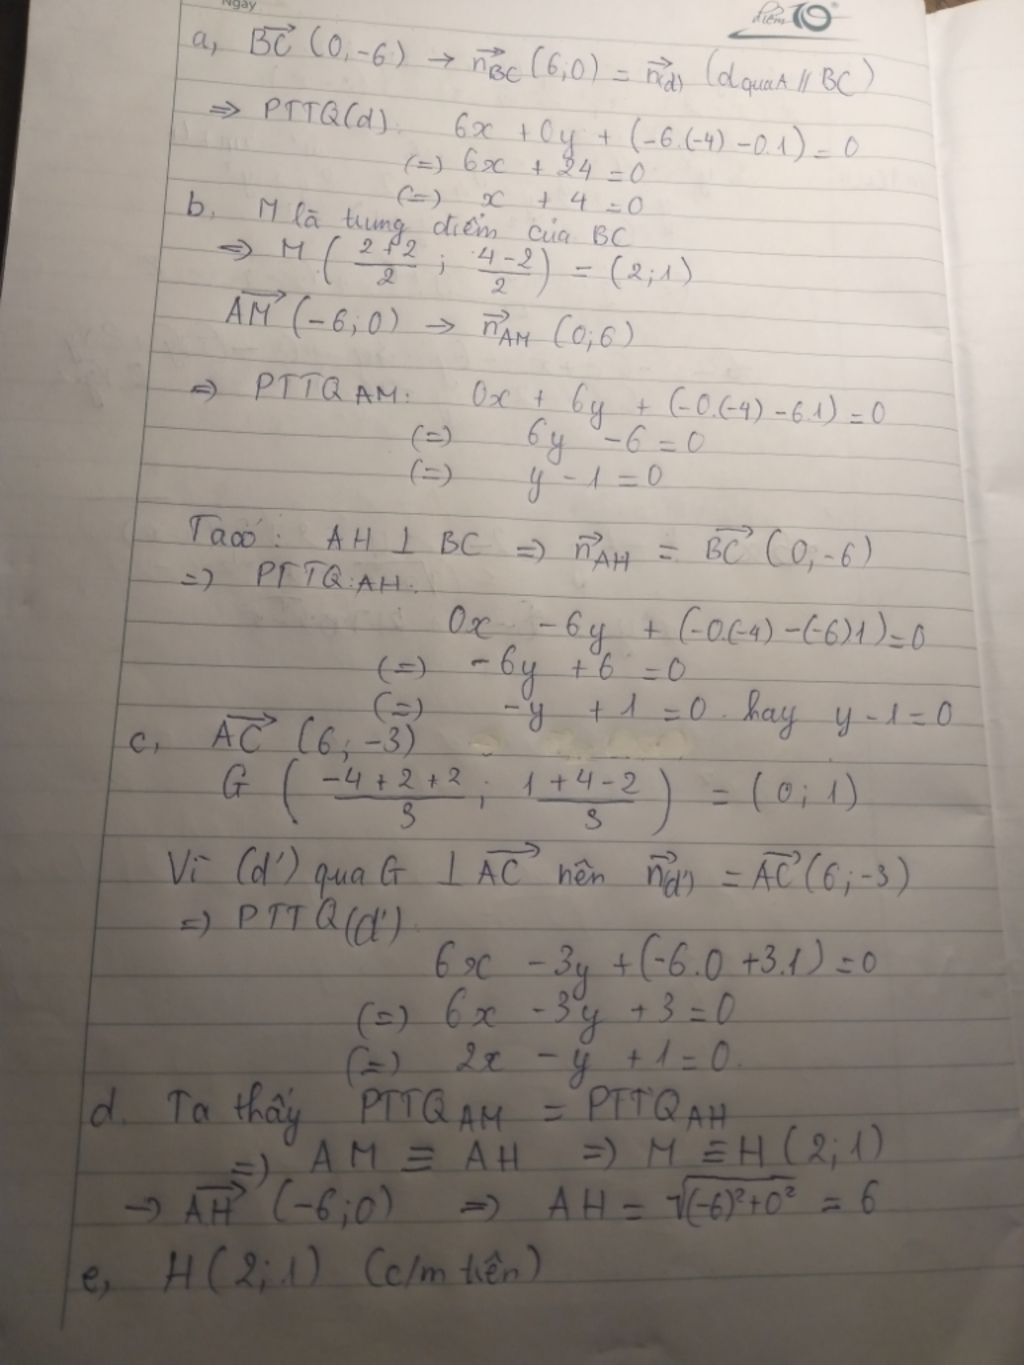 Ngày
điểm 10
a, BC→ (0,-6) → n→BC (6;0) = n→(d) (d qua A // BC)
=> PTTQ(d): 6x + 0y + (-6.(-4) - 0.1) = 0
(=) 6x + 24 = 0
(=) x + 4 = 0
b. M là trung điểm của BC
=> M ( (2+2)/2 ; (4-2)/2 ) = (2;1)
AM→ (-6;0) → n→AM (0;6)
=> PTTQ AM: 0x + 6y + (-0.(-4) - 6.1) = 0
(=) 6y - 6 = 0
(=) y - 1 = 0
Ta có: AH ⊥ BC => n→AH = BC→ (0,-6)
=> PTTQ: AH:
0x - 6y + (-0(-4) - (-6)1) = 0
(=) -6y + 6 = 0
(=) -y + 1 = 0 hay y - 1 = 0
c, AC→ (6;-3)
G ( (-4+2+2)/3 ; (1+4-2)/3 ) = (0;1)
Vì (d') qua G ⊥ AC→ nên n→(d') = AC→ (6;-3)
=> PTTQ(d')
6x - 3y + (-6.0 + 3.1) = 0
(=) 6x - 3y + 3 = 0
(=) 2x - y + 1 = 0.
d. Ta thấy PTTQ AM = PTTQ AH
=> AM ≡ AH => M ≡ H (2;1)
→ AH→ (-6;0) => AH = √((-6)²+0²) = 6
e, H(2;1) (c/m tiên)